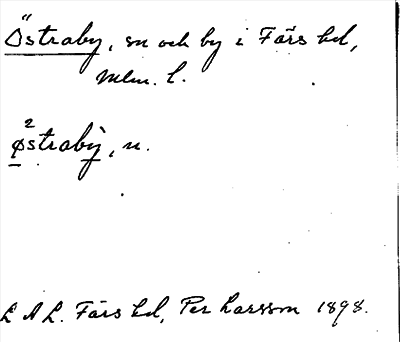 Östraby, sn och by i Färs hd,
Mlm. l.
²østrabỳ, n.
L A L. Färs hd, Per Larsson 1898.